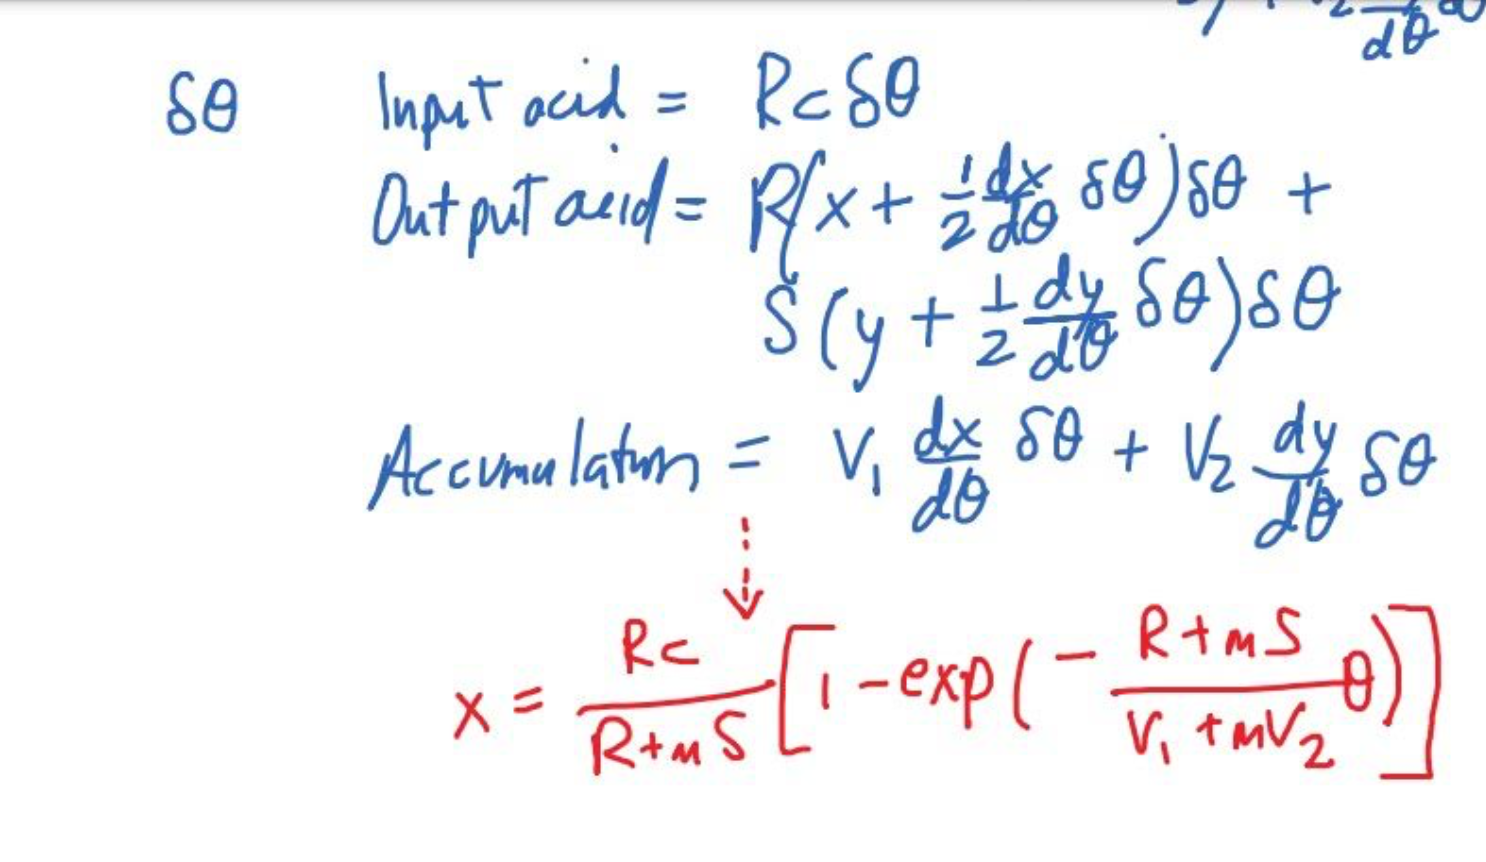 dθ
δθ Input acid = Rc δθ
Output acid = R(x + 1/2 dx/dθ δθ)δθ +
S(y + 1/2 dy/dθ δθ)δθ
Accumulation = V₁ dx/dθ δθ + V₂ dy/dθ δθ
x = Rc/(R+mS) [1 - exp(- (R+mS)/(V₁+mV₂) θ)]